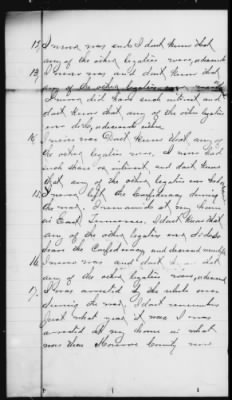 12, I never was and I dont know that
any of the other legatees were,
13, I never was and dont know that
any of the other legatees ever
I never did have such interest and
dont know that any of the other legatees
ever did,
14, I never was Dont know that any of
the other legatees were, I never had
such share or interest, and dont know
that any of the other legatees ever had
15, I never left the Confederacy during
the war, I remained at my home
in East Tennessee. I dont know that
any of the other legatees ever did
leave the Confederacy and
16, I never was and dont that
any of the other legatees were,
17, I was arrested by the rebels once
during the war, I dont remember
just what year it was I was
arrested at my home in what
was then Monroe County now